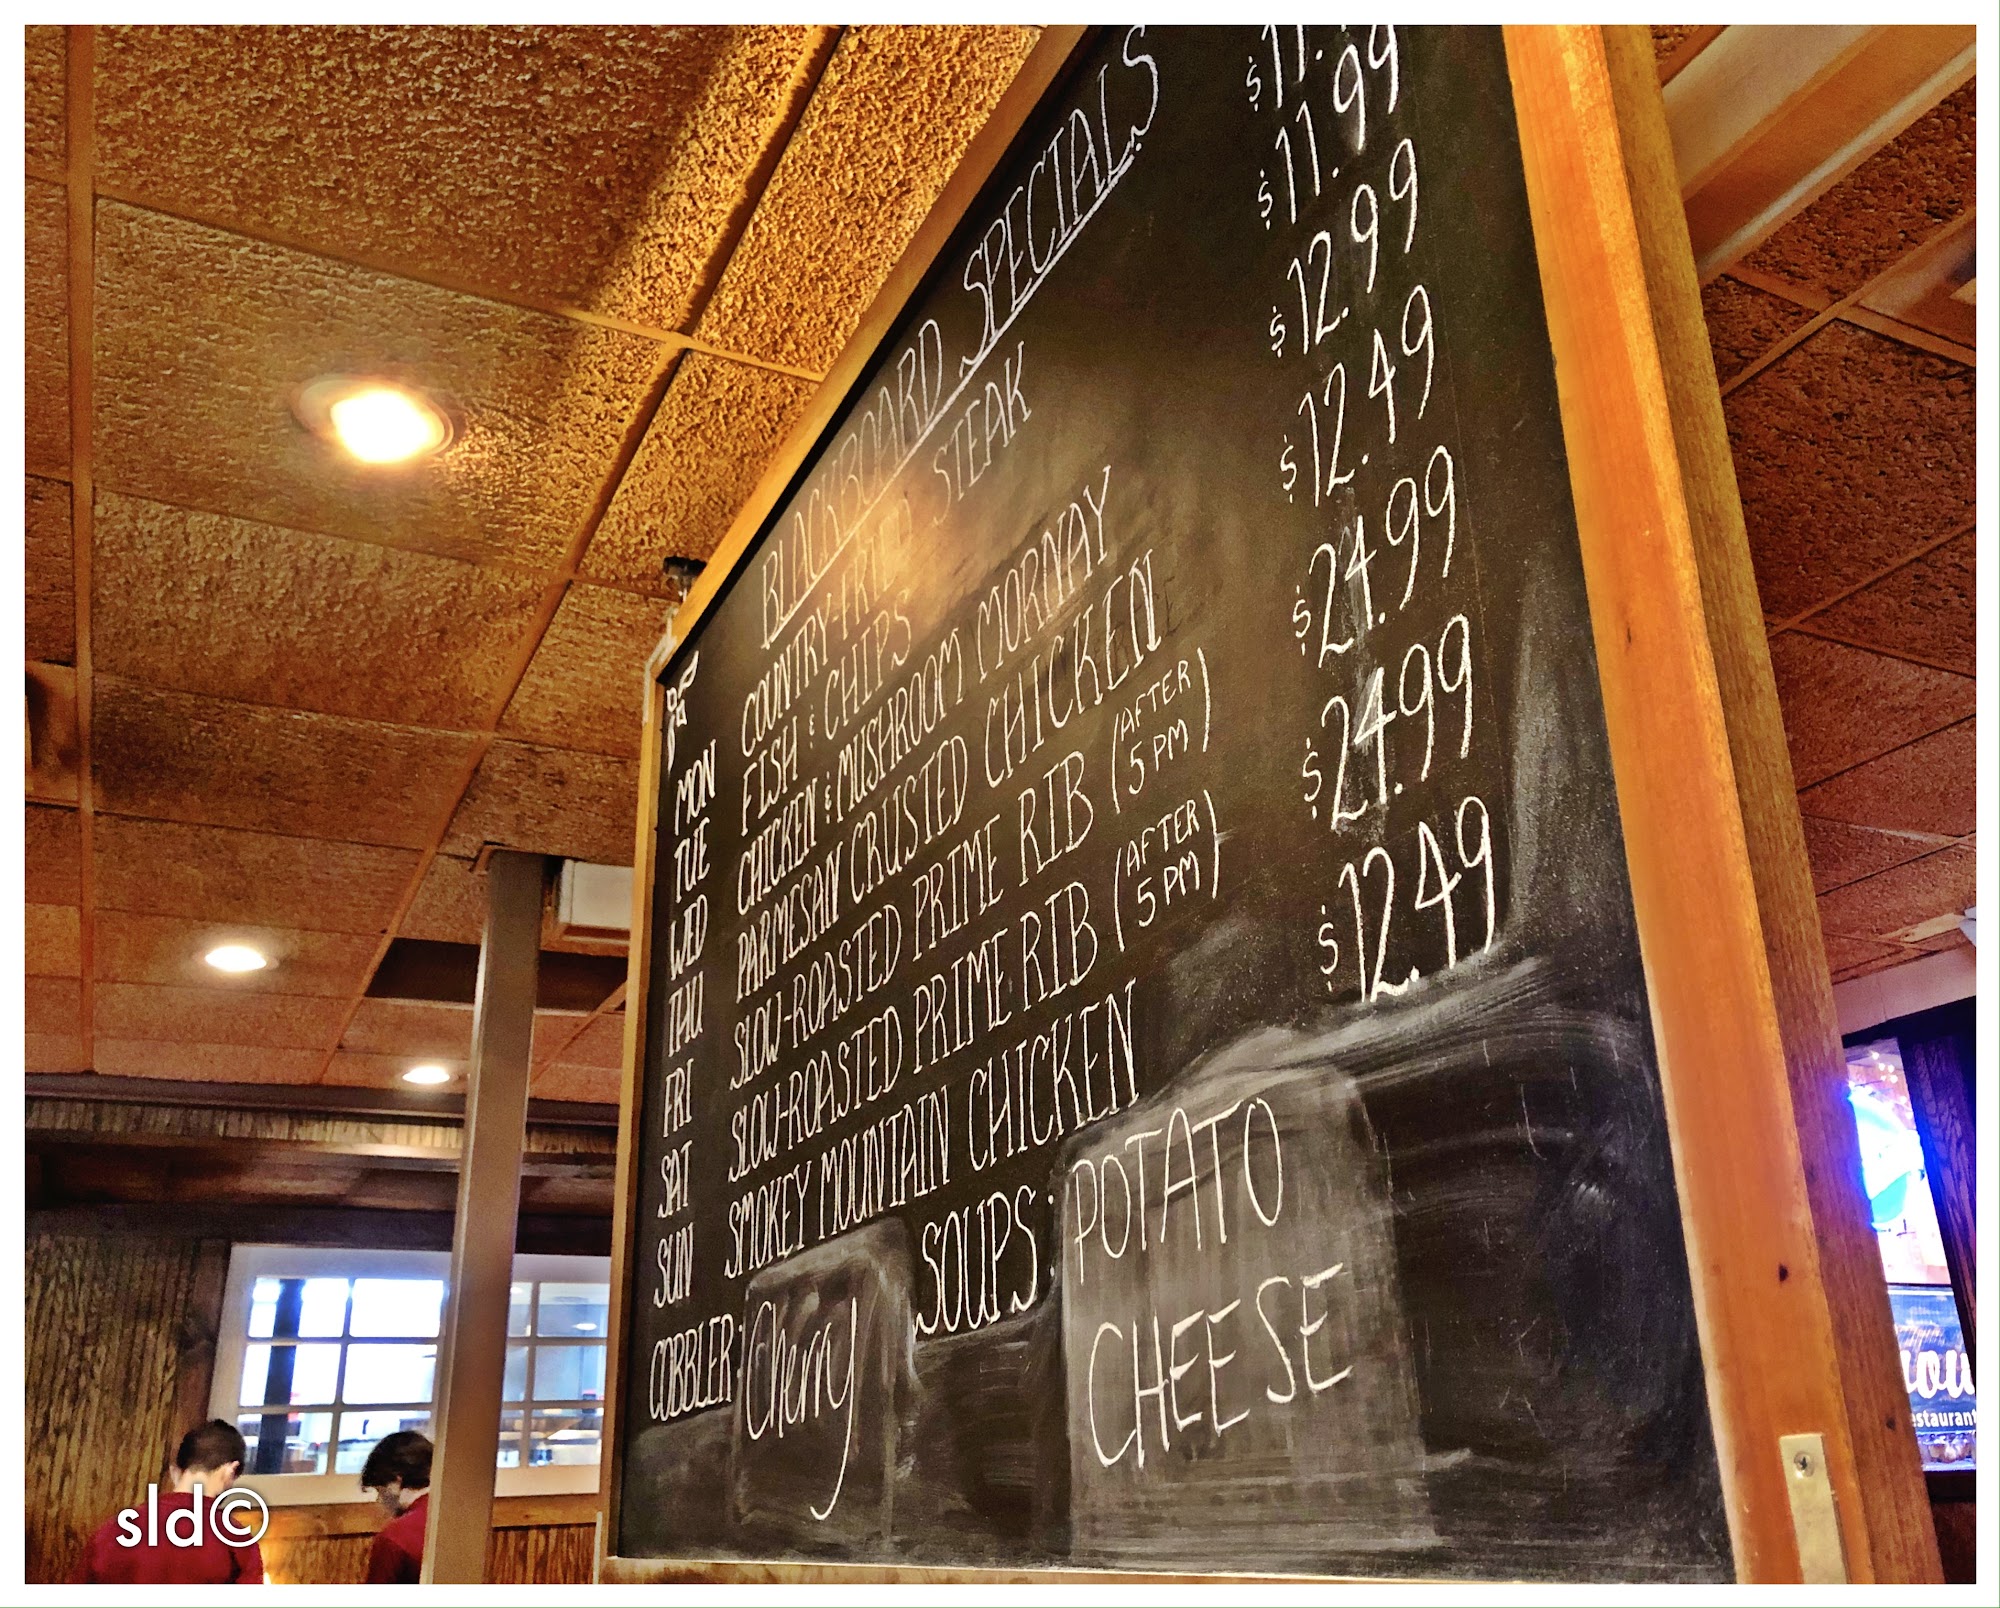 BLACKBOARD SPECIALS
MON COUNTRY-FRIED STEAK $11.
TUE FISH & CHIPS $11.99
WED CHICKEN & MUSHROOM MORNAY $12.99
THU PARMESAN CRUSTED CHICKEN $12.49
FRI SLOW-ROASTED PRIME RIB (AFTER 5 PM) $24.99
SAT SLOW-ROASTED PRIME RIB (AFTER 5 PM) $24.99
SUN SMOKEY MOUNTAIN CHICKEN $12.49
COBBLER: Cherry
SOUPS: POTATO
CHEESE
estaurant
sld©